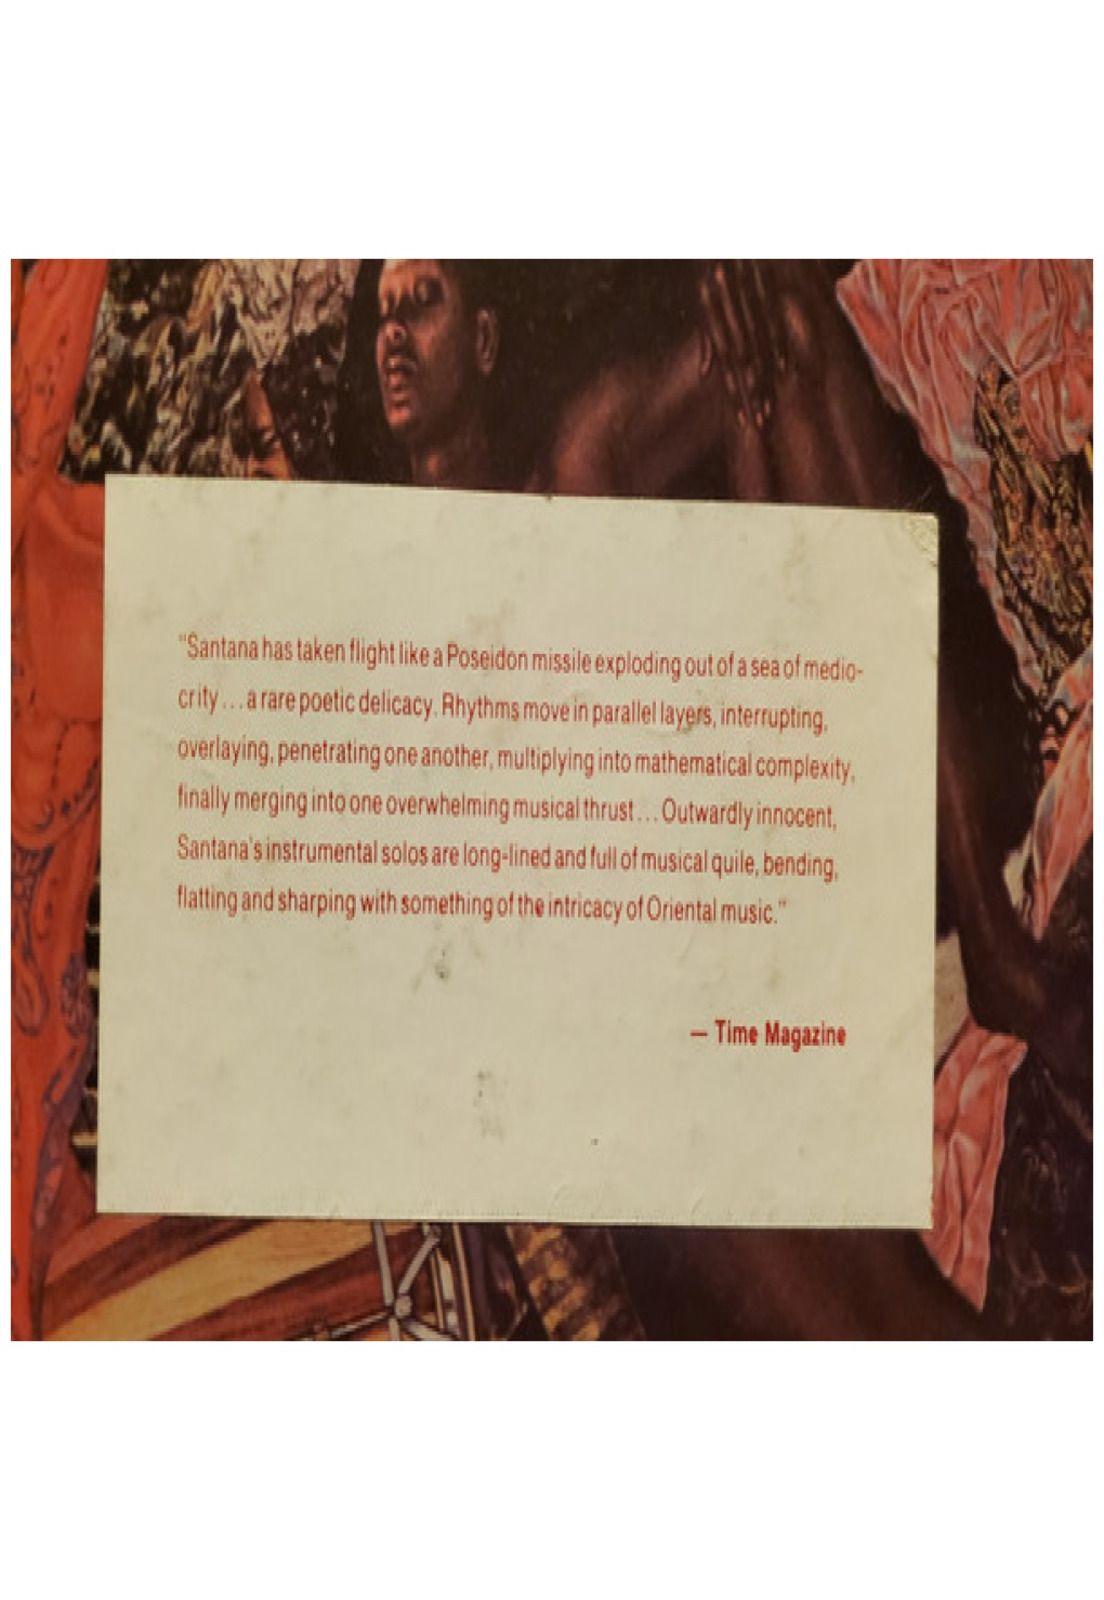 "Santana has taken flight like a Poseidon missile exploding out of a sea of medio-
crity ... a rare poetic delicacy. Rhythms move in parallel layers, interrupting,
overlaying, penetrating one another, multiplying into mathematical complexity,
finally merging into one overwhelming musical thrust ... Outwardly innocent,
Santana's instrumental solos are long-lined and full of musical quile, bending,
flatting and sharping with something of the intricacy of Oriental music."
— Time Magazine